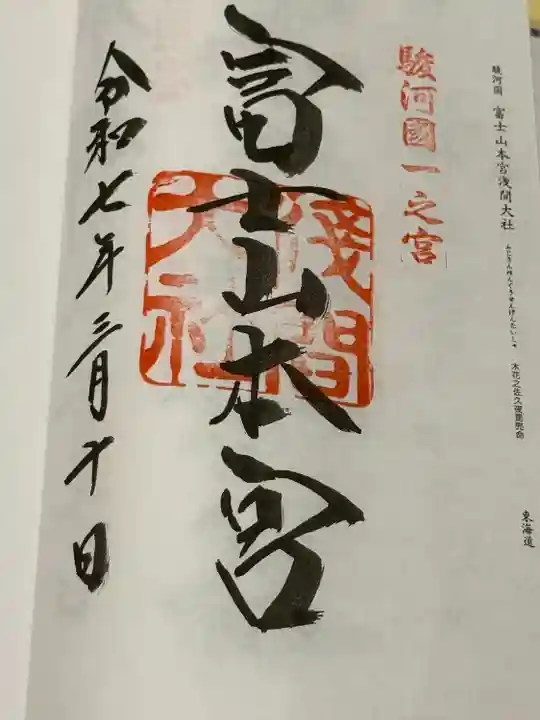 駿河国 富士山本宮浅間大社 ふじさんほんぐうせんげんたいしゃ 木花之佐久夜毘売命 東海道
駿河國一之宮
富士山本宮
淺間大社
令和七年三月十日